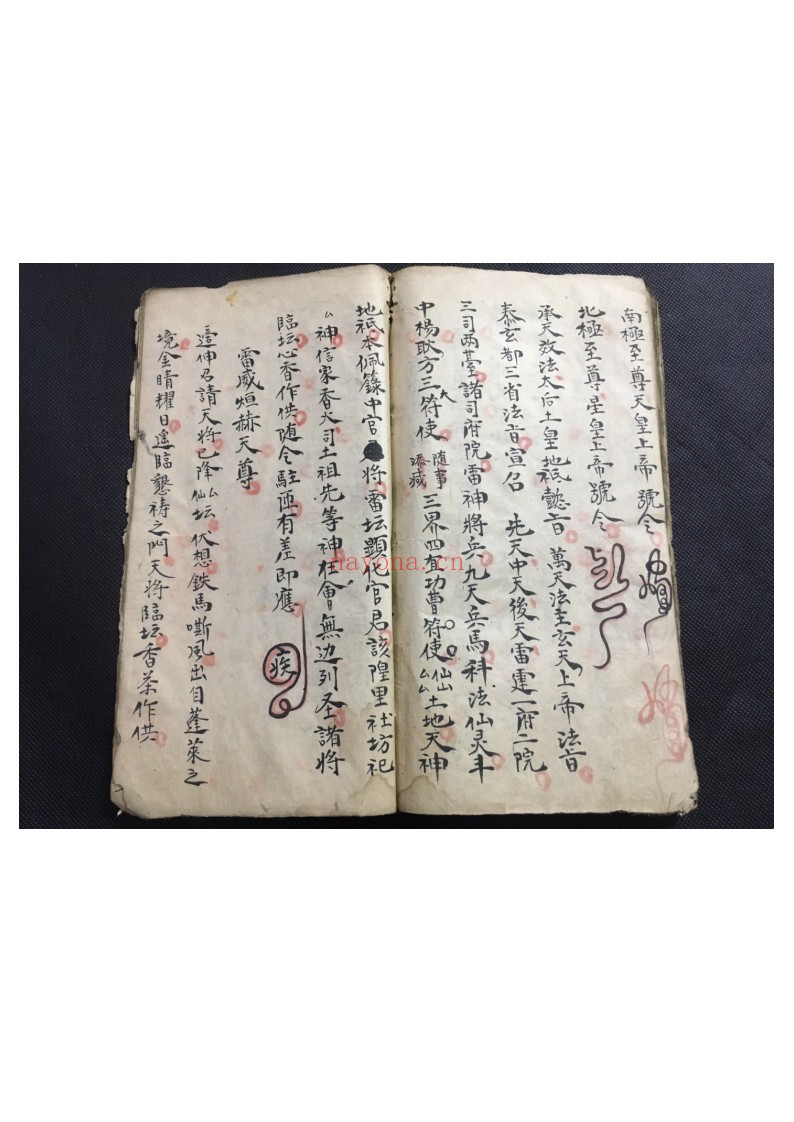 南極至尊天皇上帝號令
北極至尊星皇上帝號令
承天效法太后土皇地祇懿旨 萬天法主玄天上帝法旨
泰玄都三省法旨宣召 先天中天後天雷霆一府二院
三司两臺諸司府院雷神將兵九天兵馬科法仙灵斗
中楊耿方三大符使 随事添减 三界四直功曹符使仙ム山ム土地天神
地祇本佩籙中官君將雷坛顯化官君該隍里社坊祀
ム神信家香火司土祖先等神在會無边列圣諸將
臨坛心香作供随令駐 有差即應 疾
雷威烜赫天尊
這伸召請天將已降仙ム坛 伏想鉄馬嘶風出自蓬萊之
境金睛耀日遙臨懇祷之門天將臨坛香茶作供
nayona.cn